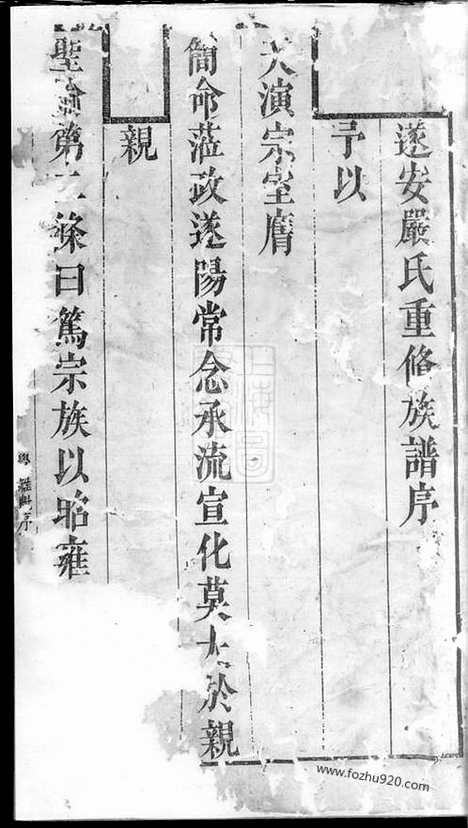 遂安嚴氏重脩族譜序
予以
天演宗室膺
簡命蒞政遂陽常念承流宣化莫大於親
親
聖諭第二條曰篤宗族以昭雍
序
www.fozhu920.com